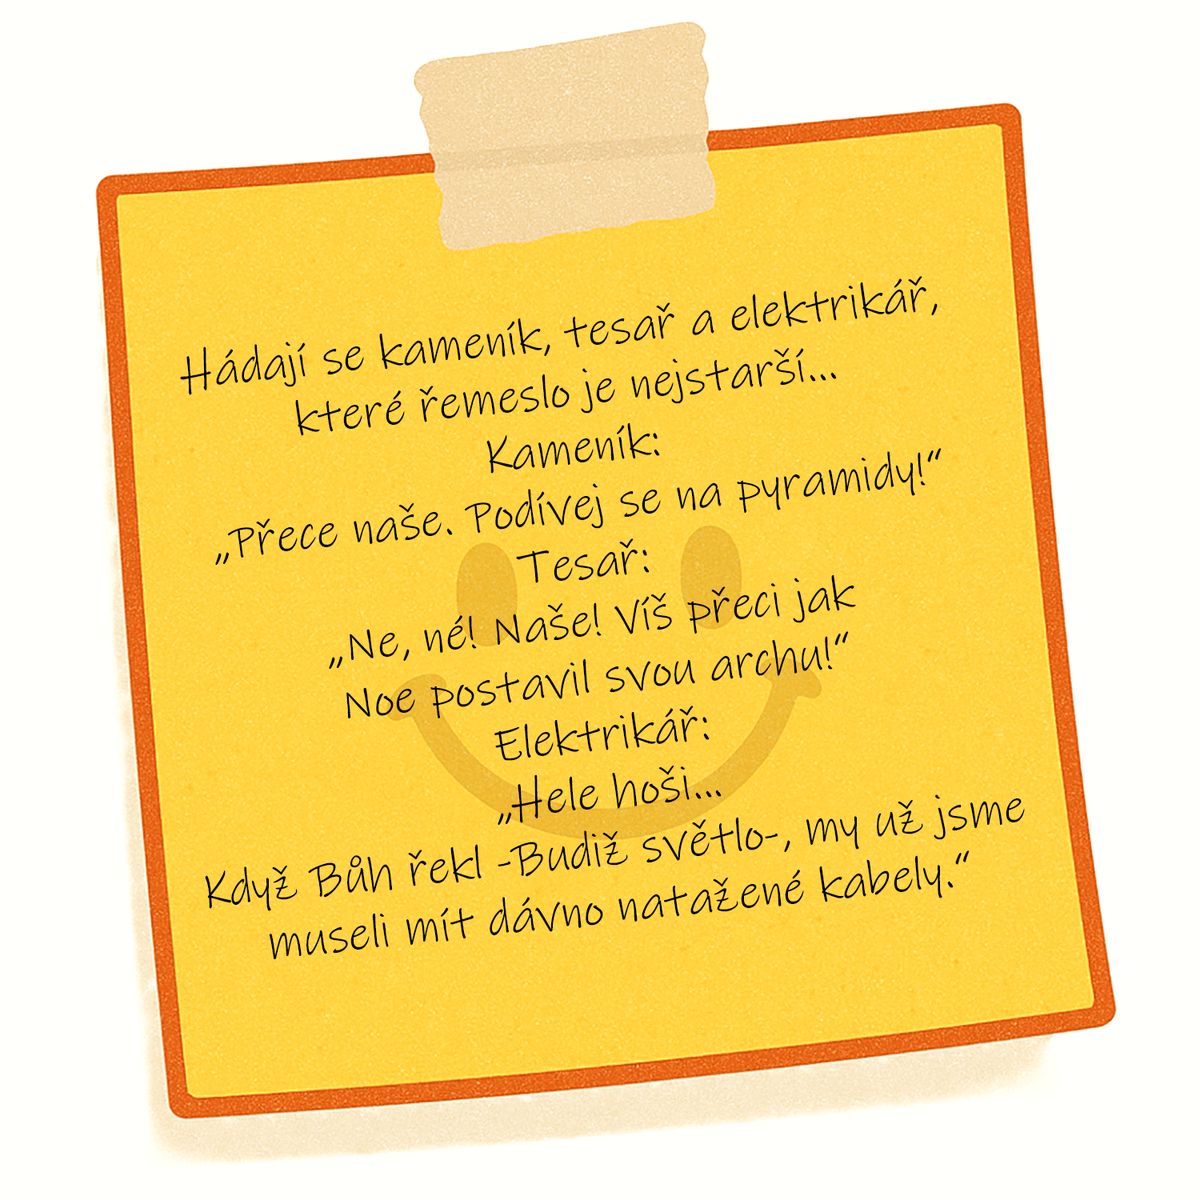 Hádají se kameník, tesař a elektrikář,
které řemeslo je nejstarší...
Kameník:
„Přece naše. Podívej se na pyramidy!“
Tesař:
„Ne, né! Naše! Víš přeci jak
Noe postavil svou archu!“
Elektrikář:
„Hele hoši...
Když Bůh řekl -Budiž světlo-, my už jsme
museli mít dávno natažené kabely.“